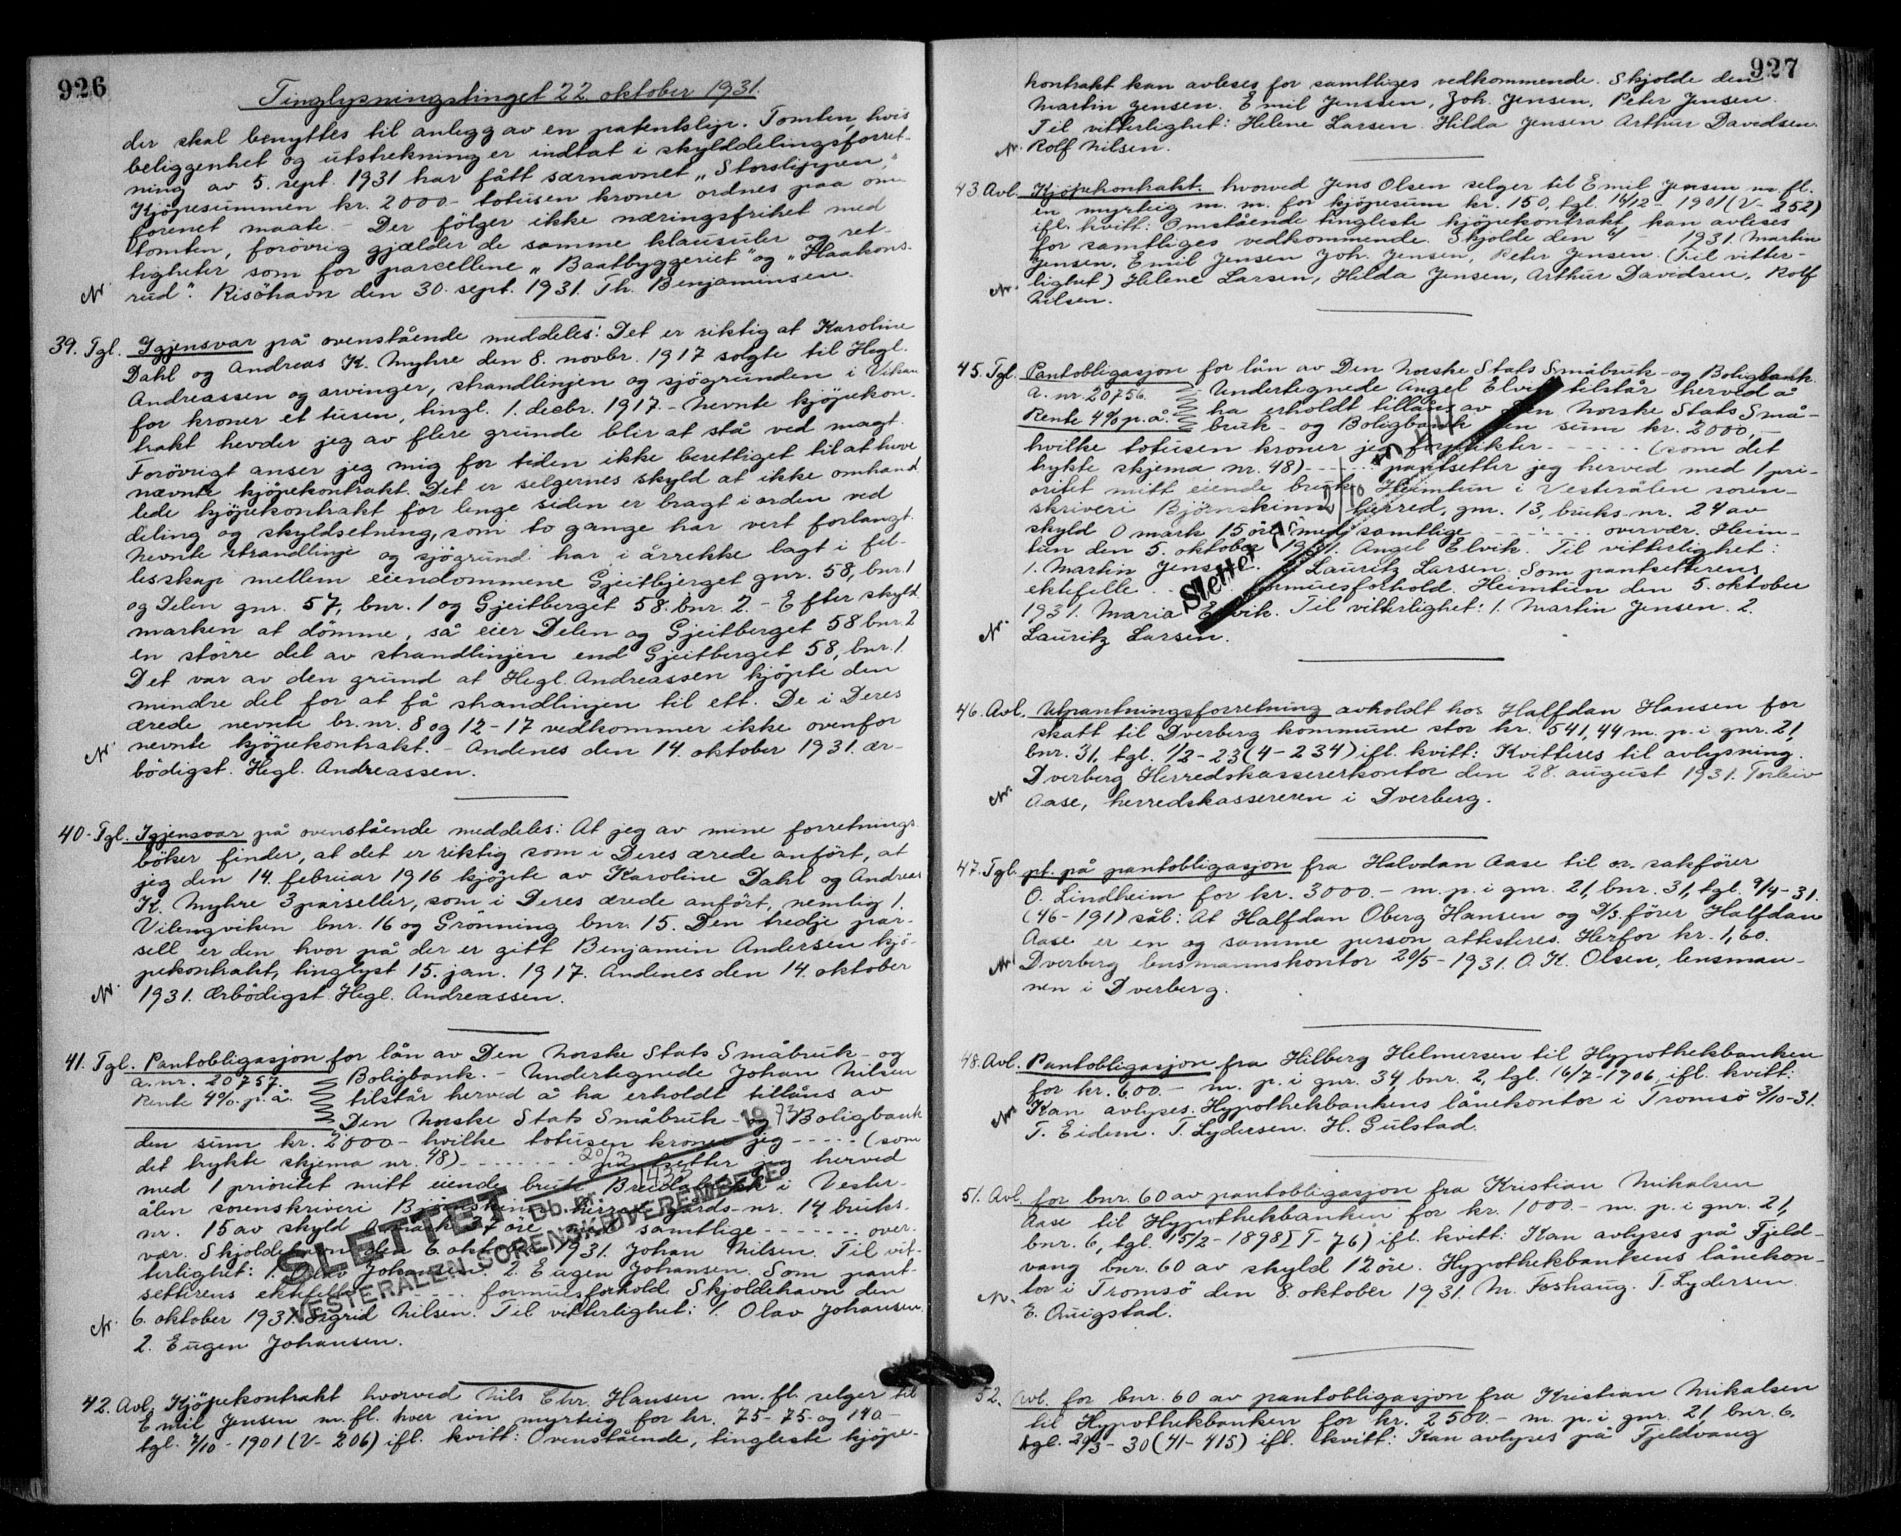 926
Tinglysningstinget 22 oktober 1931.
der skal benyttes til anlegg av en patentslip. Tomten, hvis
beliggenhet og utstrekning er indtat i skylddelingsforret-
ning av 5. sept. 1931 har fått særnavnet „Storslippen."
Kjöpesummen kr. 2000- totusen kroner ordnes paa om-
forenet maate. - Der fölger ikke næringsfrihet med
tomten, forövrig gjælder de samme klausuler og ret-
tigheter som for parcellene „Baatbyggeriet" og „Haakons-
rud". Risöhavn den 30. sept. 1931. Th. Benjaminsen.
39. Tgl. Igjensvar på ovenstående meddeles: Det er riktig at Karoline
Dahl og Andreas K. Myhre den 8. novbr. 1917 solgte til Hegl.
Andreassen og arvinger, strandlinjen og sjögrunden i
for kroner et tusen, tingl. 1. decbr. 1917. - Nevnte kjöpekon-
trakt hevder jeg av flere grunde blir at stå ved magt.
Forövrigt anser jeg mig for tiden ikke berettiget til at heve
nævnte kjöpekontrakt. Det er selgernes skyld at ikke omhand
lede kjöpekontrakt for lenge siden er bragt i orden ved
deling og skyldsetning, som to gange har vert forlangt.
Nevnte strandlinje og sjögrund har i årrekke lagt i fel-
lesskap mellem eiendommene Gjeitbjerget gnr. 58, bnr. 1
og Delen gnr. 57, bnr. 1 og Gjeitberget 58 bnr. 2. - Efter skyld
marken at dömme, så eier Delen og Gjeitberget 58 bnr. 2
en större del av strandlinjen end Gjeitberget 58, bnr. 1.
Det var av den grund at Hegl. Andreassen kjöpte den
mindre del for at få strandlinjen til ett. De i Deres
ærede nevnte br. nr. 8 og 12-17 vedkommer ikke ovenfor
nevnte kjöpekontrakt. - Andenes den 14. oktober 1931. ær-
bödigst. Hegl. Andreassen.
40. Tgl. Igjensvar på ovenstående meddeles: At jeg av mine forretnings
böker finder, at det er riktig som i Deres ærede anfört, at
jeg den 14. februar 1916 kjöpte av Karoline Dahl og Andreas
K. Myhre 3 parseller, som i Deres ærede anfört, nemlig 1.
bnr. 16 og Grönning bnr. 15. Den tredje par-
sell er den hvor på der er gitt Benjamin Andersen kjö-
pekontrakt, tinglyst 15. jan. 1917. Andenes den 14. oktober
1931. Ærbödigst Hegl. Andreassen.
41. Tgl. Pantobligasjon for lån av Den Norske Stats Småbruk- og
a. nr. 20757. Boligbank. - Undertegnede Johan Nilsen
Rente 4% p. a. tilstår herved å ha erholdt tillåns av
Den Norske Stats Småbruk- og Boligbank
den sum kr. 2000- hvilke totusen kroner jeg ----- (som
det trykte skjema nr. 48) -------- pantsetter jeg herved
med 1 prioritet mitt eiende bruk i Vester-
ålen sorenskriveri Björnskinn herred, gårds-nr. 14 bruks-
nr. 15 av skyld 0 mark 37 öre samtlige ------ over-
vær. Skjoldehavn den 6. oktober 1931. Johan Nilsen. Til vit-
terlighet: 1. Olav Johansen. 2. Eugen Johansen. Som pant-
setterens ektefelle ------ formuesforhold. Skjoldehavn den
6. oktober 1931. Sigrid Nilsen. Til vitterlighet: 1. Olav Johansen.
2. Eugen Johansen.
SLETTET
Db. nr. 1433
20/3 1973
VESTERÅLEN SORENSKRIVEREMBETE
42. Avl. Kjöpekontrakt hvorved Nils Chr. Hansen m. fl. selger til
Emil Jensen m. fl. hver sin myrteig for kr. 75- 75- og 140-
tgl. 2/10 - 1901 (V- 206) ifl. kvitt: Ovenstående, tingleste kjöpe-
927
kontrakt kan avleses for samtliges vedkommende. Skjolde den
Martin Jensen. Emil Jenssen, Joh. Jensen, Peter Jensen.
Til vitterlighet: Helene Larsen. Hilda Jensen Arthur Davidsen.
Rolf Nilsen.
43. Avl. Kjöpekontrakt. hvorved Jens Olsen selger til Emil Jensen m. fl.
en myrteig m. m. for kjöpesum kr. 150, tgl. 16/12 - 1901 (V- 252)
ifl. kvitt: Omstående tingleste kjöpekontrakt kan avleses
for samtliges vedkommende. Skjolde den 1931. Martin
Jensen, Emil Jensen Joh. Jensen, Peter Jensen. (Til vitter-
lighet) Helene Larsen, Hilda Jensen, Arthur Davidsen, Rolf
Nilsen.
45. Tgl. Pantobligasjon for lån av Den Norske Stats Småbruk- og Boligbank.
a. nr 20756. Undertegnede Angel Elvik tilstår herved å
Rente 4% p. a. ha erholdt tillåns av Den Norske Stats Små-
bruk- og Boligbank den sum kr. 2000.-
hvilke totusen kroner jeg forplikter ------ (som det
trykte skjema nr. 48) ------ pantsetter jeg herved med 1 pri-
oritet mitt eiende bruk Heimtun i Vesterålen soren-
skriveri Björnskinn herred, gnr. 13, bruks-nr. 24 av
skyld 0 mark 15 öre med samtlige -------- overvær. Heim-
tun den 5. oktober 1931. Angel Elvik. Til vitterlighet:
1. Martin Jensen. 2. Lauritz Larsen. Som pantsetterens
ektefelle formuesforhold. Heimtun den 5. oktober
1931. Maria Elvik. Til vitterlighet: 1. Martin Jensen. 2.
Lauritz Larsen.
Slettet
46. Avl. Utpantningsforretning avholdt hos Halfdan Hansen for
skatt til Dverberg kommune stor kr. 541,44 m. p. i gnr. 21,
bnr. 31, tgl. 1/2 - 23 (4-234) ifl. kvitt: Kvitteres til avlysning.
Dverberg Herredskassererkontor den 28. august 1931. Torleiv
Aase, herredskassereren i Dverberg.
47. Tgl. pt. på pantobligasjon fra Halvdan Aase til o.r. sakförer
O. Lindheim for kr. 3000.- m. p. i gnr. 21, bnr. 31, tgl. 9/4-31.
(46-191) sål: At Halfdan Oberg Hansen og förer Halfdan
Aase er en og samme person attesteres. Herfor kr. 1,60.
Dverberg lensmannskontor 20/5-1931. O. K. Olsen, lensman-
nen i Dverberg.
48. Avl. Pantobligasjon fra Hilberg Helmersen til Hypothekbanken
for kr. 600.- m. p. i gnr. 34 bnr. 2, tgl. 16/7-1906 ifl. kvitt:
Kan avlyses. Hypothekbankens lånekontor i Tromsö 3/10-31.
T. Eidem. T. Lydersen. H. Gulstad.
51. Avl. for bnr. 60 av pantobligasjon fra Kristian Mikalsen
Aase til Hypothekbanken for kr. 1000.- m. p. i gnr. 21,
bnr. 6, tgl. 15/2-1898 (T-76) ifl. kvitt: Kan avlyses på Fjeld-
vang bnr. 60 av skyld 12 öre. Hypothekbankens lånekon-
tor i Tromsö den 8. oktober 1931. M. Foshaug. T. Lydersen.
E. Quigstad.
52. Avl. for bnr. 60 av pantobligasjon fra Kristian Mikalsen
til Hypothekbanken for kr. 2500.- m. p. i gnr. 21 bnr. 6,
tgl. 20/3-30 (41-415) ifl. kvitt: Kan avlyses på Fjeldvang